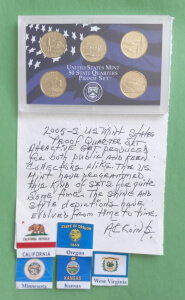 UNITED STATES MINT
50 STATE QUARTERS
PROOF SET
2005-S US Mint States
Proof Quarter Set
Attractive set produced
for both public and keen
collectors alike. The US
Mint have programmed
this kind of sets for quite
some time. The shining and
state dedications have
evolved from time to time.
AC Koin
CALIFORNIA REPUBLIC
STATE OF OREGON
CALIFORNIA
Oregon
Minnesota
KANSAS
Kansas
West Virginia